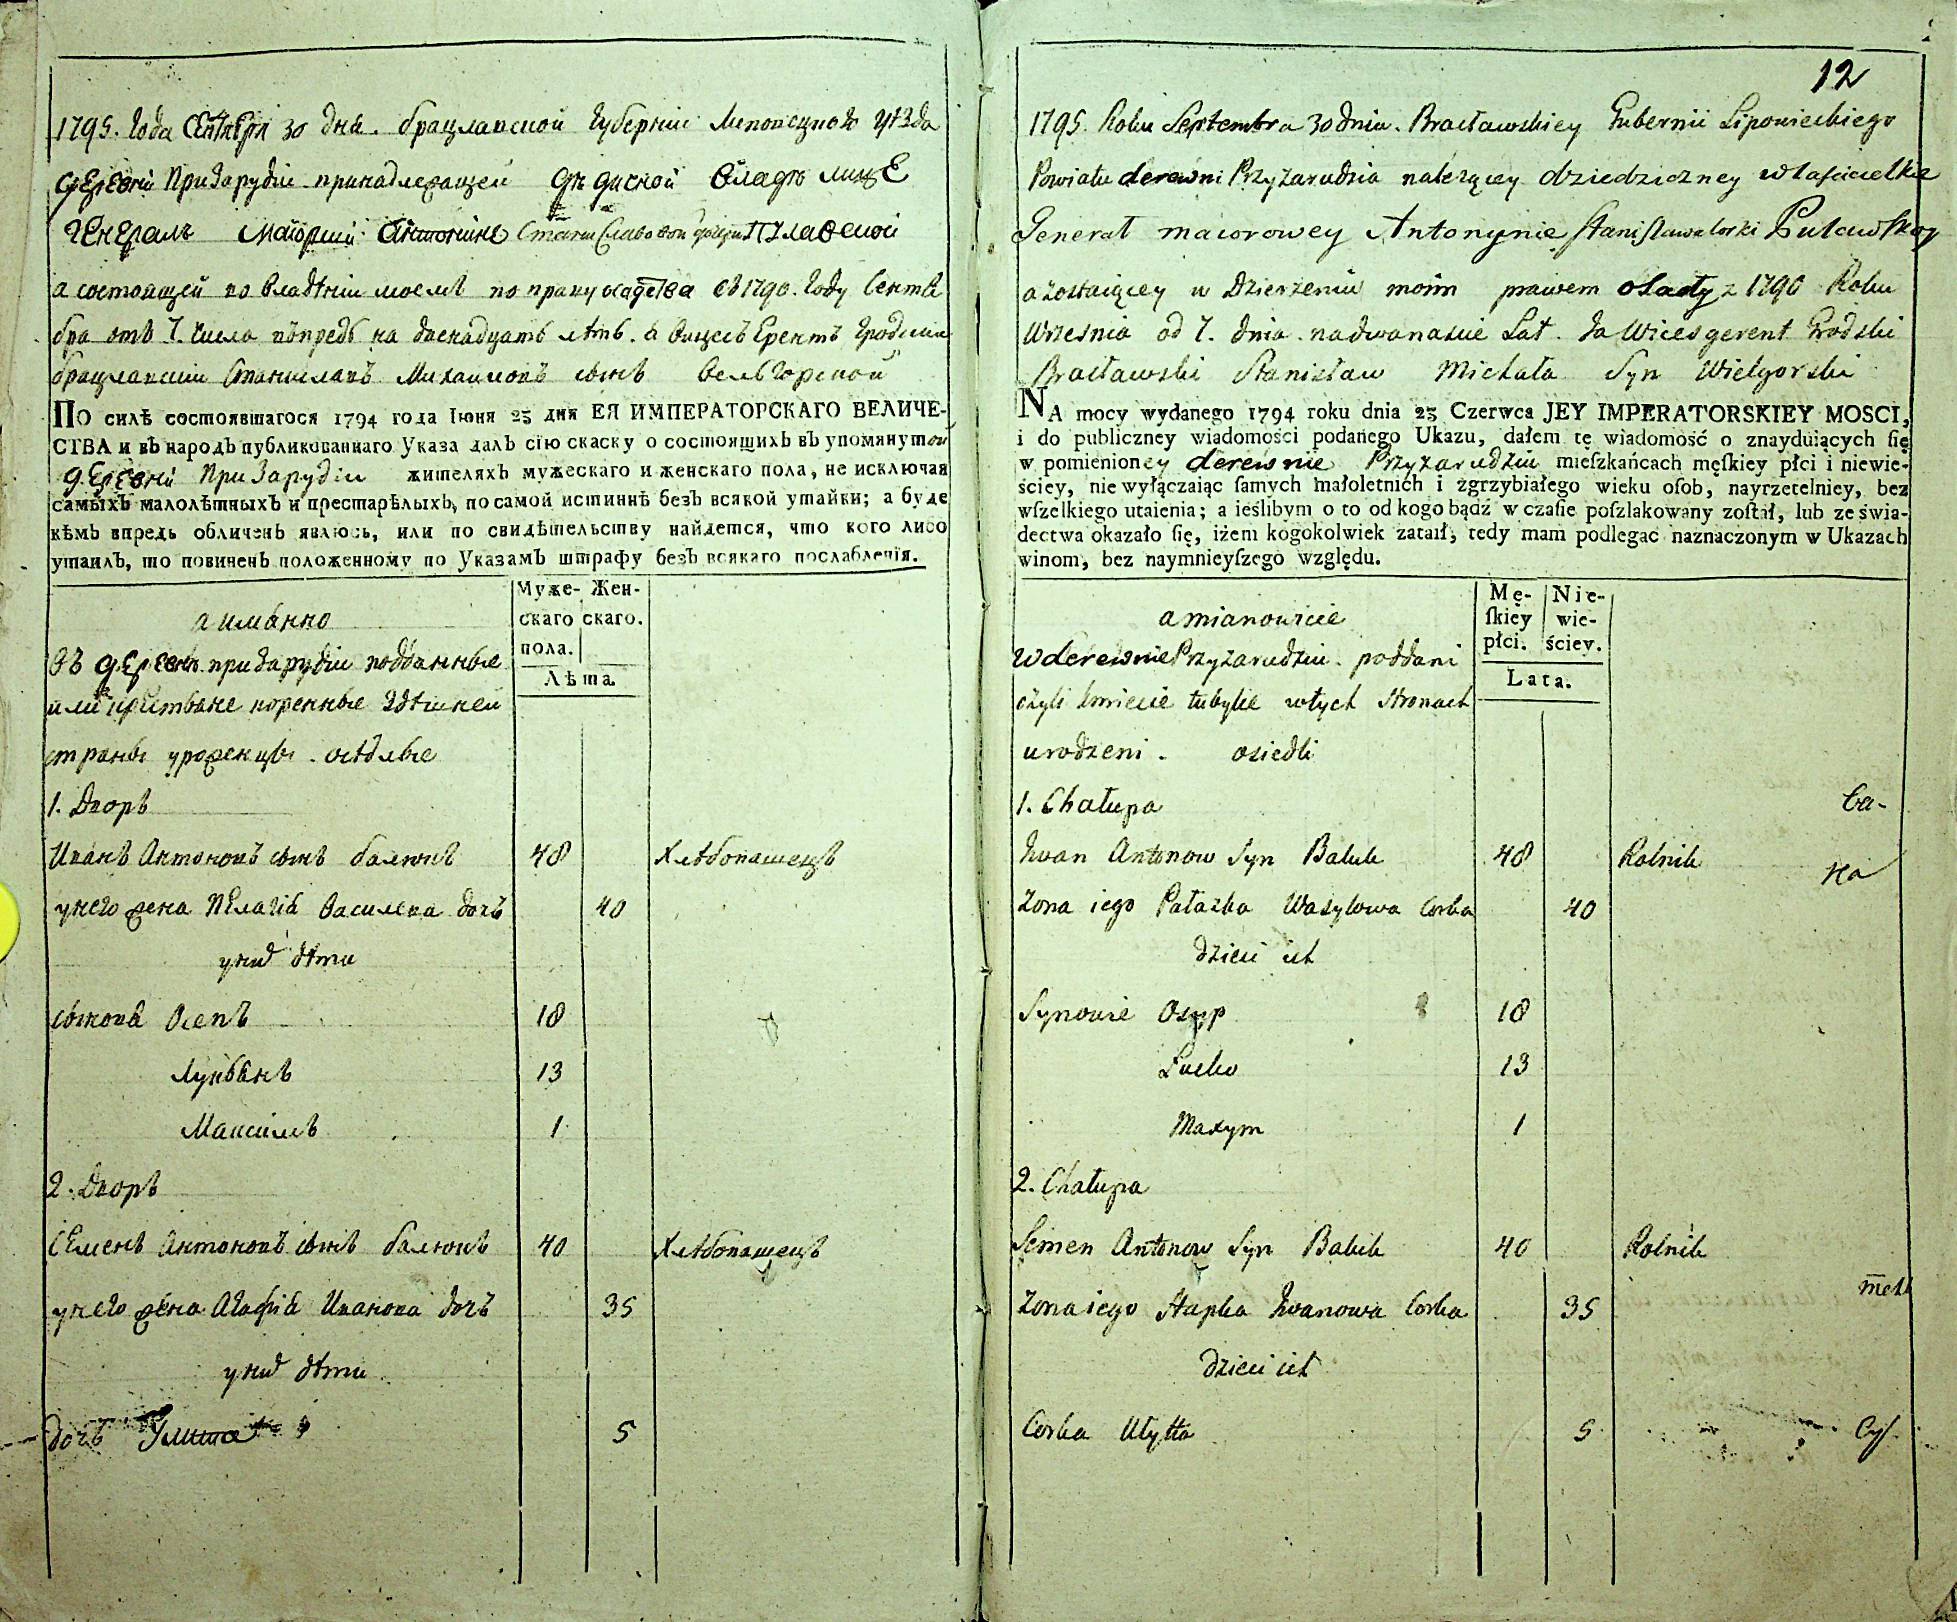 1795. Года Сентября 30 дня. брацлавской Губернии Липовецкого уѣзда
деревни Призарудiи принадлежащей дѣдиской владѣлице
Генералъ Маиорши Антонине Станиславовой дочери Пулавской
а состоящей во владѣнiи моемъ по праву осадства съ 1790. Году Сентя
бря отъ 7. числа впредь на двенадцать лѣтъ. я Вицесъгерентъ Гродски
брацлавски Станиславъ Михаиловъ сынъ Вельгорской
ПО силѣ состоявшагося 1794 года Iюня 23 дня ЕЯ ИМПЕРАТОРСКАГО ВЕЛИЧЕ-
СТВА и въ народъ публикованнаго Указа далъ сiю скаску о состоящихъ въ упомянутой
деревни Призарудiи жителяхъ мужескаго и женскаго пола, не исключая
самыхъ малолѣтныхъ и престарѣлыхъ, по самой истиннѣ безъ всякой утайки; а буде
кѣмъ впредь обличенъ явлюсь, или по свидѣтельству найдется, что кого либо
утаилъ, то повиненъ положенному по Указамъ штрафу безъ всякаго послабленiя.
Муже- Жен-
скаго скаго.
пола.
Лѣта.
а иманно
Въ деревнѣ призарудiи подданные
или крстьяне коренные здѣшней
страны уроженцы. осѣдлые
1. Дворъ
Иванъ Антоновъ сынъ балюкъ 48 Хлѣбопашецъ
унего жена Пелагiя Василева дочь 40
уних дѣти
сыновя Осепъ 18
Лукьянъ 13
Максимъ 1
2. Дворъ
Семенъ Антоновъ сынъ балюкъ 40 Хлѣбопашецъ
унего жена Агафiя Иванова дочь 35
уних дѣти
дочь Улита 5
12
1795. Roku Septembra 30 dnia. Bracławskiey Gubernii Lipowieckiego
Powiatu derewni Przyzarudzia należącey dziedziczney właścicielkie
Generał maiorowey Antonynie Stanisławaborski Puławskoy
a zostaiącey w Dzierżeniu moim prawem osady z 1790 Roku
Września od 7. dnia. nadwanaście Lat. Ja Wicesgerent Grodski
Bracławski Stanisław Michała Syn Wielgorski
NA mocy wydanego 1794 roku dnia 23 Czerwca JEY IMPERATORSKIEY MOSCI,
i do publiczney wiadomości podanego Ukazu, dałem tę wiadomość o znayduiących ſię
w pomienioney derewnie Przyzarudziu mieſzkańcach męſkiey płci i niewie-
ściey, nie wyłączaiąc ſamych małoletnich i zgrzybiałego wieku oſob, nayrzetelniey, bez
wſzelkiego utaienia; a ieślibym o to od kogo bądź w czaſie poſzlakowany zoſtał, lub ze świa-
dectwa okazało ſię, iżem kogokolwiek zataił, tedy mam podlegać naznaczonym w Ukazach
winom, bez naymnieyſzego względu.
Mę- Nie-
ſkiey wie-
płci. ściey.
Lata.
amianowicie
wderewniePrzyzarudziu. poddani
czyli kmiecie tubylce wtych stronach
urodzeni. osiedli
1. Chałupa
Ca-
Iwan Antonow Syn Baluk 48 Rolnik
На
Zona iego Pałazka Wasylowa Corka 40
dzieci ich
Synowie Osyp 18
Łucko 13
Maxym 1
2. Chałupa
Semen Antonow Syn Baluk 40 Rolnik
Zona iego Hapka Iwanowa Corka 35
dzieci ich
Corka Ulyta 5